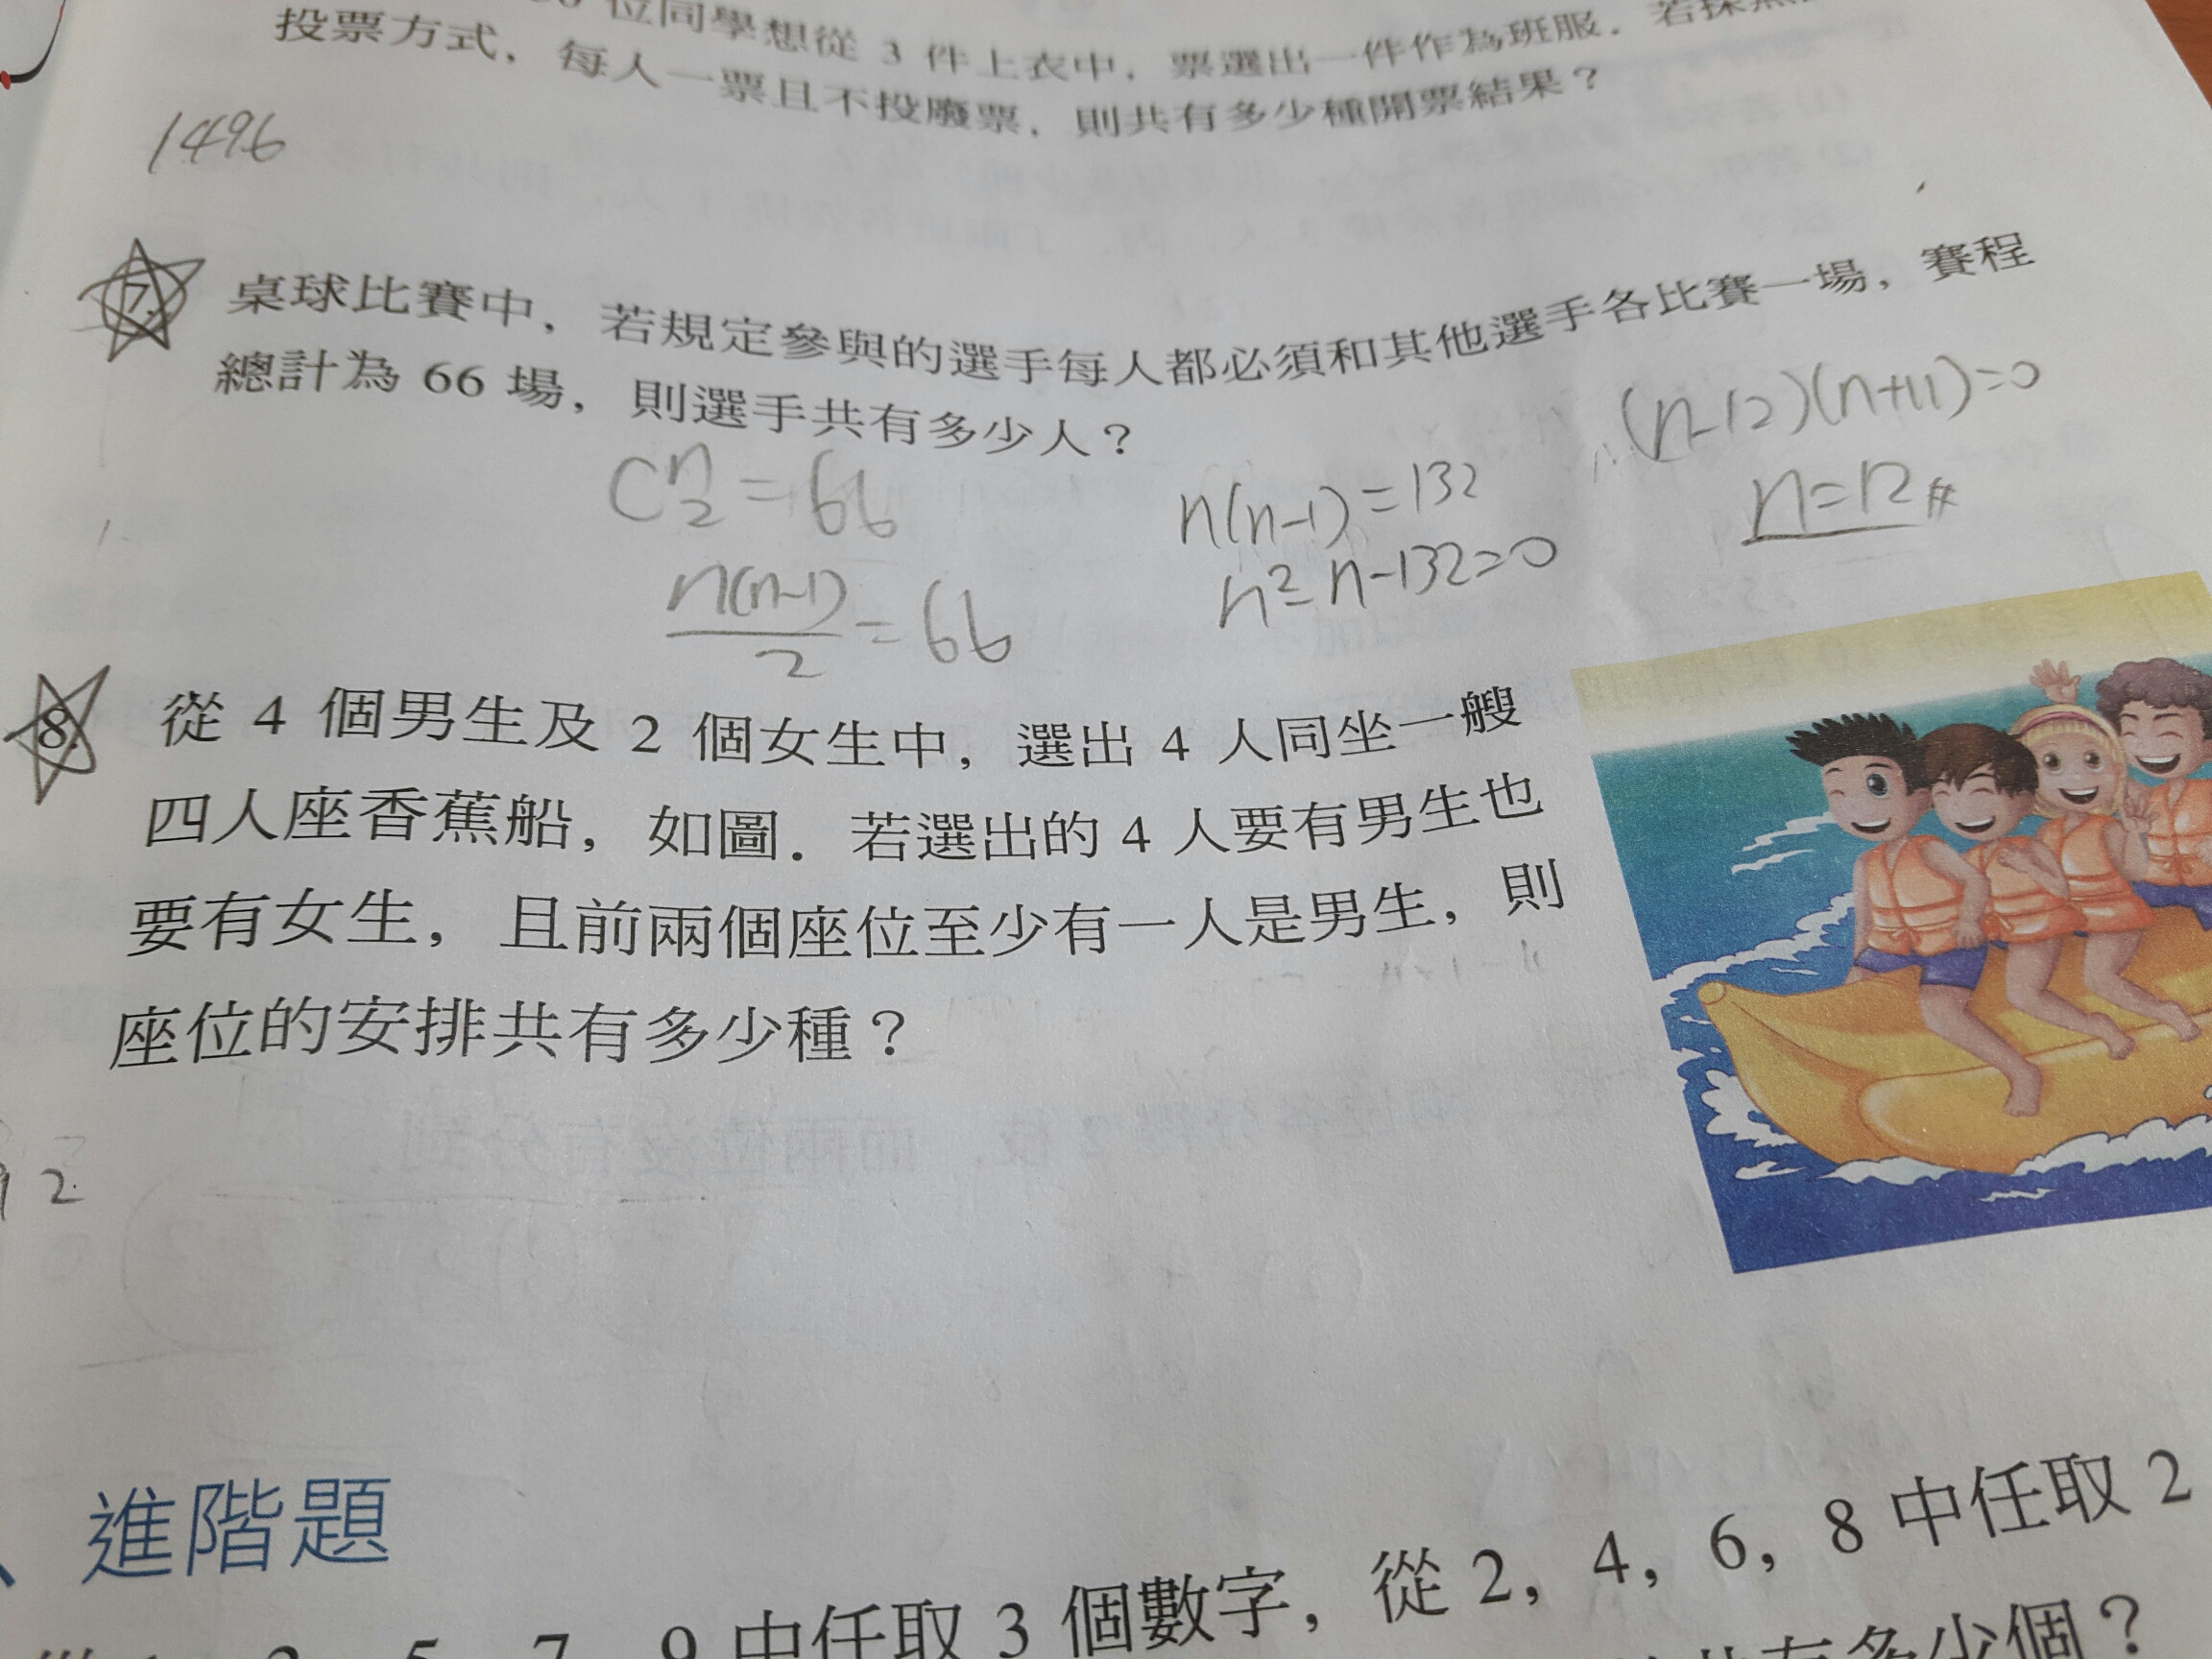 位同學想從 3 件上衣中，票選出一件作為班服．若採
投票方式，每人一票且不投廢票，則共有多少種開票結果？
1496
7. 桌球比賽中，若規定參與的選手每人都必須和其他選手各比賽一場，賽程
總計為 66 場，則選手共有多少人？
(n-12)(n+11)=0
C n 2 = 66
n(n-1)=132
n=12 #
n(n-1)/2 = 66
n²-n-132=0
8. 從 4 個男生及 2 個女生中，選出 4 人同坐一艘
四人座香蕉船，如圖．若選出的 4 人要有男生也
要有女生，且前兩個座位至少有一人是男生，則
座位的安排共有多少種？
2
、進階題
5 7 9 中任取 3 個數字，從 2，4，6，8 中任取 2
共有多少個？